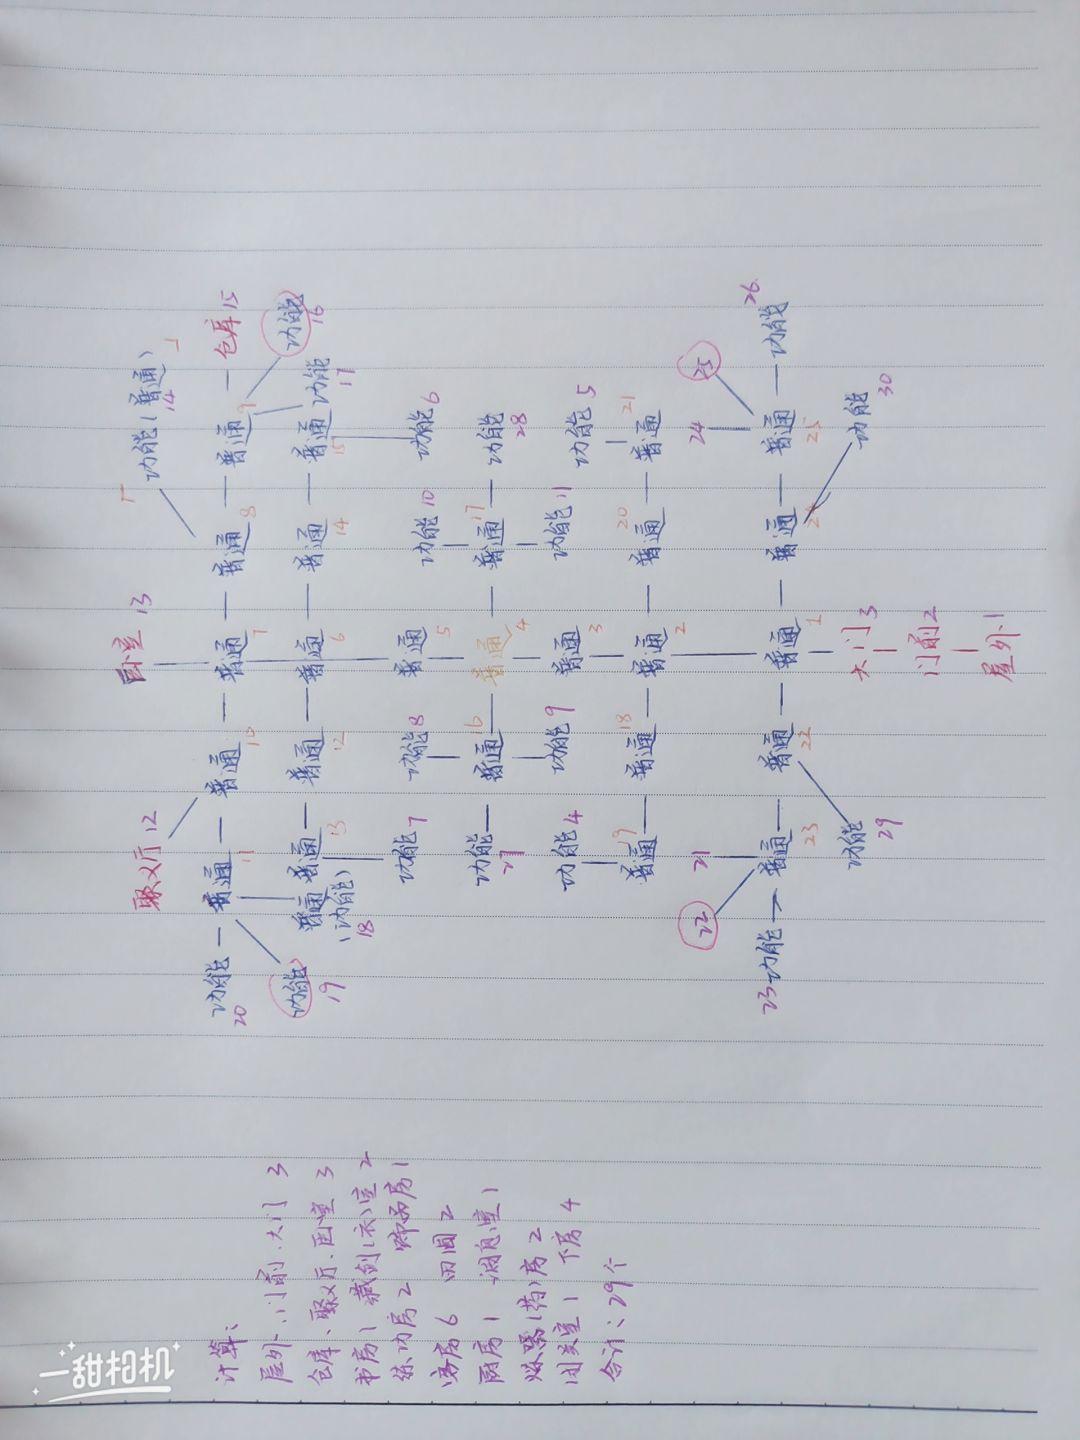 计算:
屋外、门前、大门 3
仓库、聚义厅、卧室 3
书房 1 藏剑(衣)室 2
练功房 2 饰品房 1
客房 6 田园 2
厨房 1 消息室 1
炼器(药)房 2
闭关室 1 下房 4
合计:29个
聚义厅 12
卧室 13
功能(普通)
14
功能 普通 普通 普通 普通 普通 仓库 15
20 11 10 7 8 9
功能 功能
19 16
普通 普通 普通 普通 普通 普通 功能
(功能) 13 12 6 14 15 17
18
功能 7 功能 8 普通 5 功能 10 功能 6
功能 普通 普通 普通 功能
27 16 4 17 28
功能 4 功能 9 普通 3 功能 11 功能 5
普通 普通 普通 普通 普通
19 18 2 20 21
22 21 24 25
23 功能 普通 普通 普通 普通 普通 功能 26
23 22 1 24 25
功能 29 大门 3 功能 30
门前 2
屋外 1
一甜相机